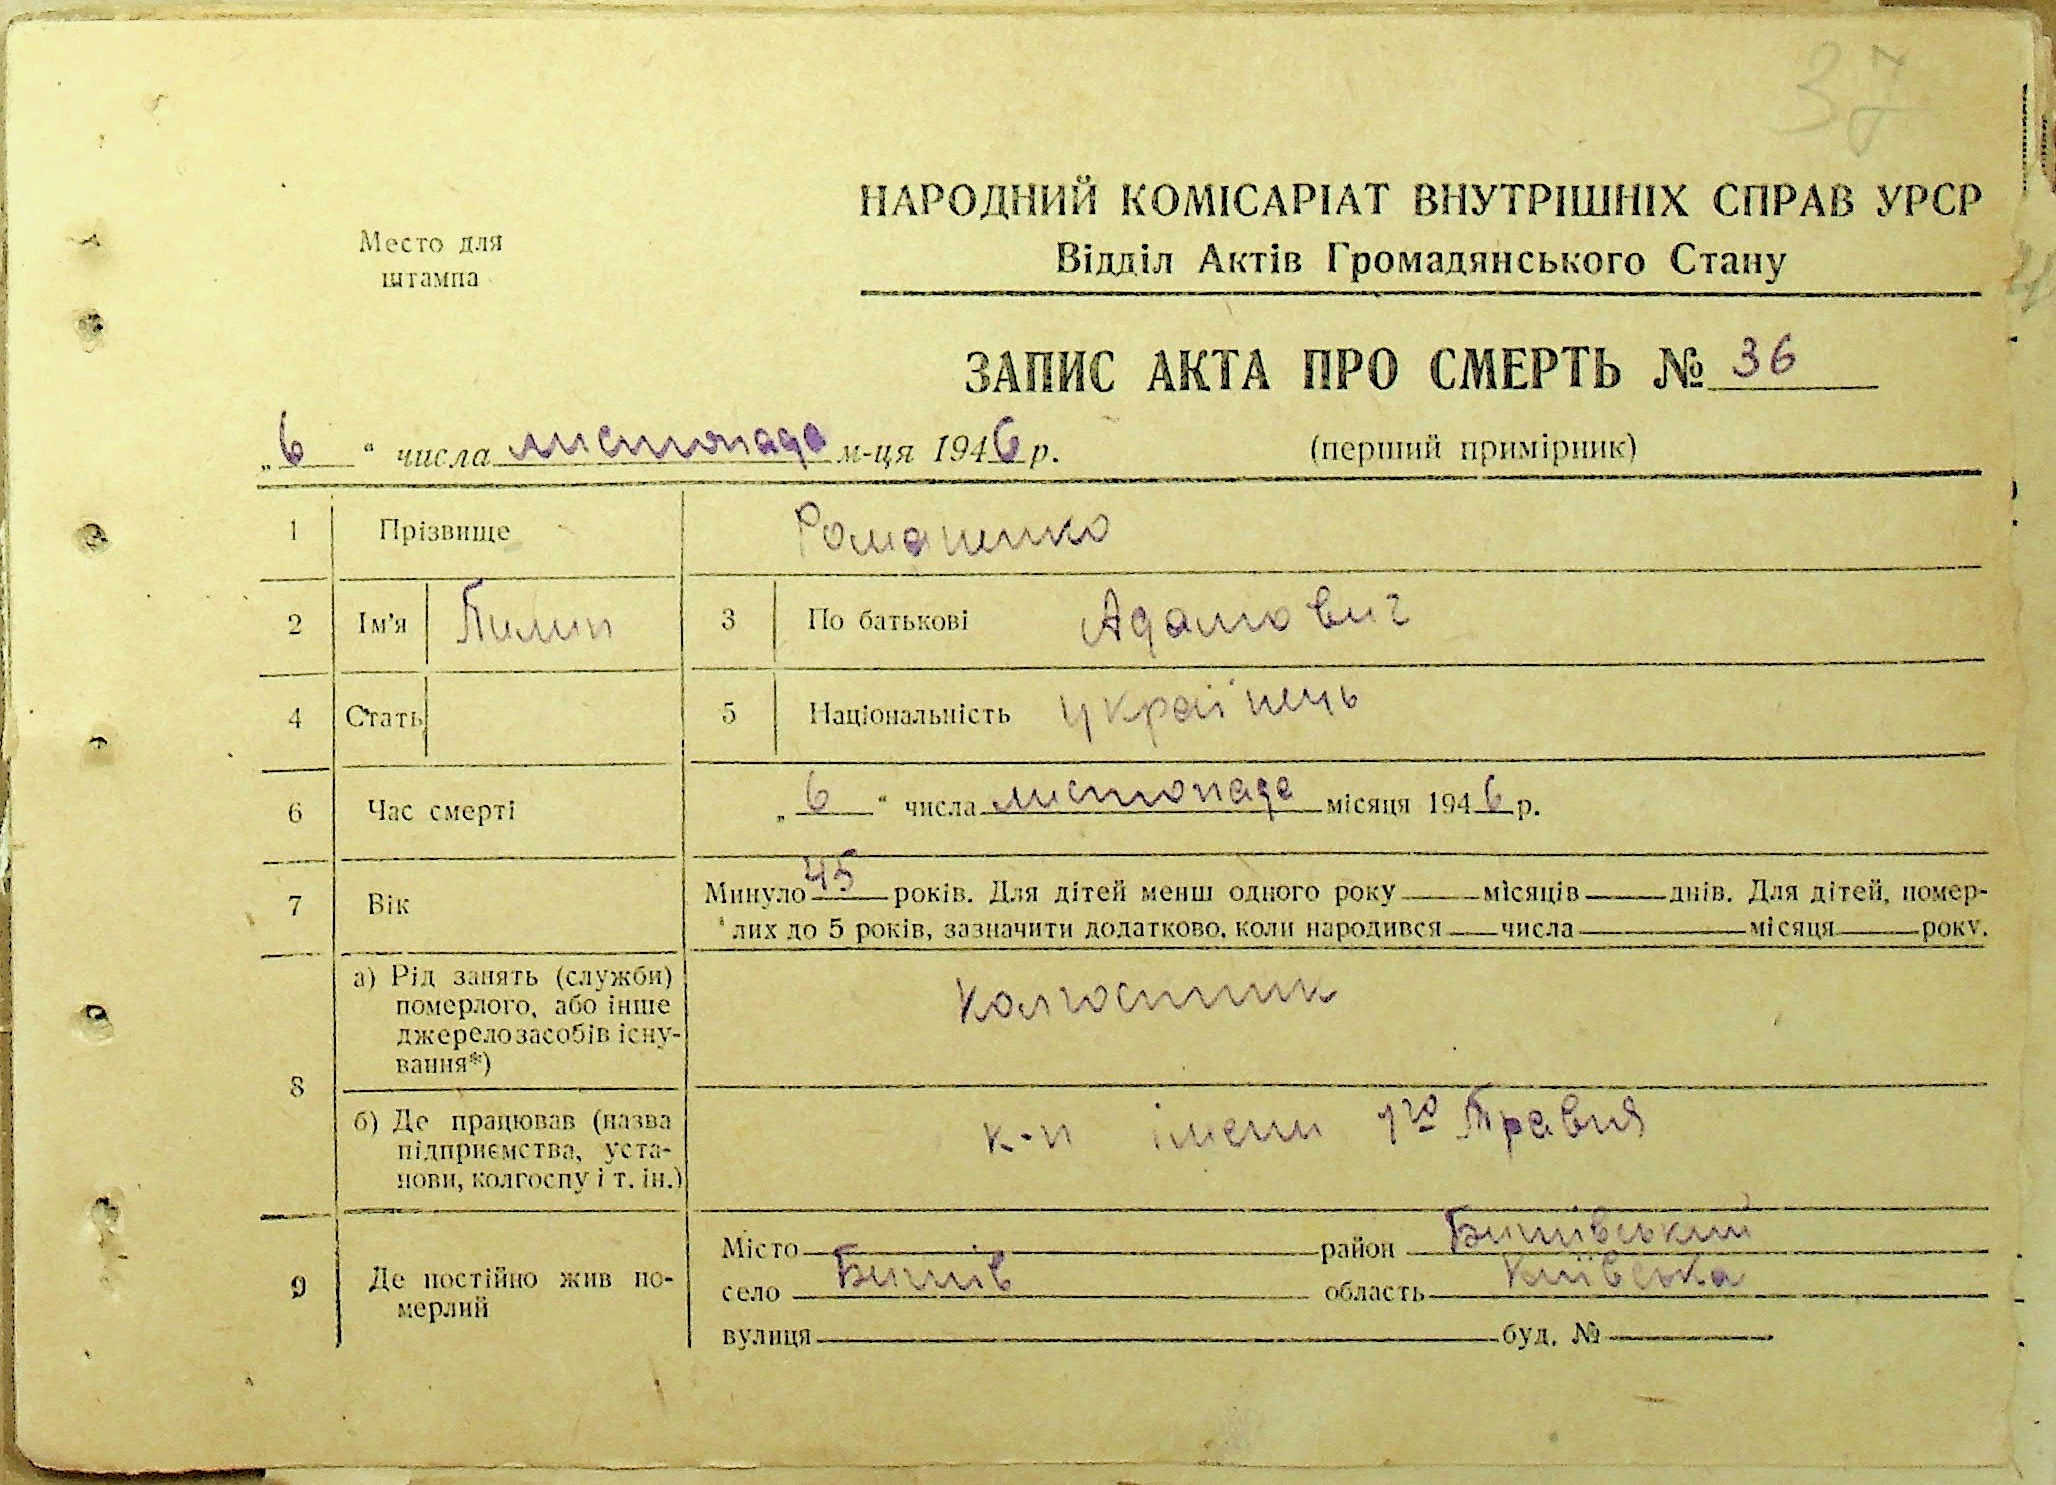 37
НАРОДНИЙ КОМІСАРІАТ ВНУТРІШНІХ СПРАВ УРСР
Место для
штампа
Відділ Актів Громадянського Стану
ЗАПИС АКТА ПРО СМЕРТЬ № 36
„6“ числа листопада м-ця 1946 р.
(перший примірник)
1 Прізвище Романенко
2 Ім'я Пилип 3 По батькові Адамович
4 Стать 5 Національність українець
6 Час смерті „6“ числа листопада місяця 1946 р.
7 Вік Минуло 45 років. Для дітей менш одного року місяців днів. Для дітей, помер-
лих до 5 років, зазначити додатково, коли народився числа місяця року.
8 а) Рід занять (служби)
померлого, або інше
джерело засобів існу-
вання*)
Колгоспник
б) Де працював (назва
підприємства, уста-
нови, колгоспу і т. ін.)
к-п імени 1го Травня
9 Де постійно жив по-
мерлий
Місто район Бишівський
село Бишів область Київська
вулиця буд. №